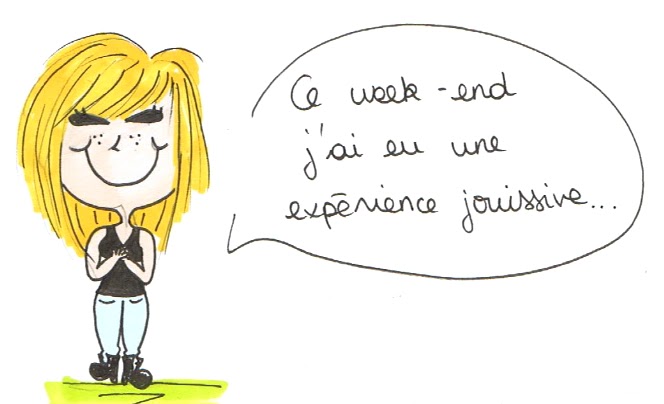 Ce week-end
j'ai eu une
expérience jouissive...